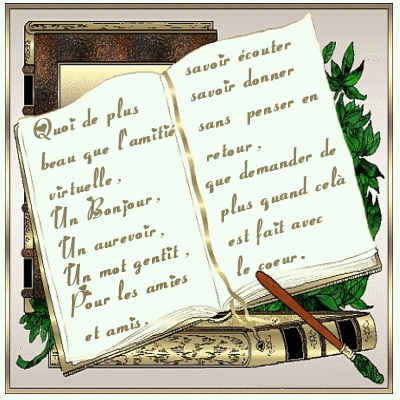 Quoi de plus
beau que l'amitié
virtuelle,
Un Bonjour,
Un aurevoir,
Un mot gentit,
Pour les amies
et amis,
savoir écouter
savoir donner
sans penser en
retour,
que demander de
plus quand celà
est fait avec
le coeur.